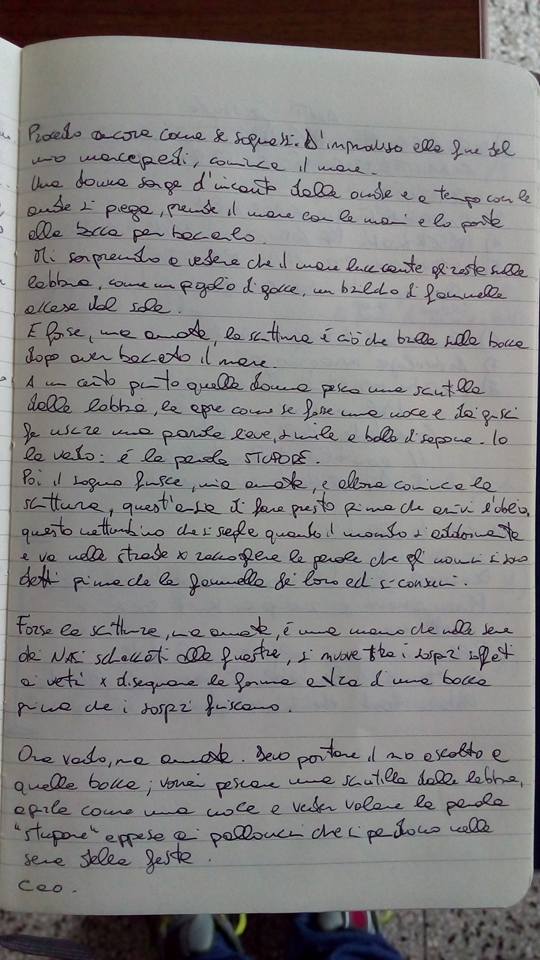 Procedo ancora come se sognassi. D'improvviso alla fine del
mio marciapiedi, comincia il mare.
Una donna sorge d'incanto dalle onde e a tempo con le
onde si piega, prende il mare con le mani e lo porta
alla bocca per baciarlo.
Mi sorprendo a vedere che il mare luccicante gli resta sulle
labbra, come un pigolio di gocce, un baluardo di fiammelle
accese dal sole.
E forse, mia amata, la scrittura è ciò che balla sulla bocca
dopo aver baciato il mare.
A un certo punto quella donna pesca una scintilla
dalle labbra, la apre come se fosse una noce e dai gusci
fa uscire una parola lieve, simile a bolla di sapone. Io
la vedo: è la parola STUPORE.
Poi il sogno finisce, mia amata, e allora comincia la
scrittura, quest'ansia di fare presto prima che arrivi l'oblio,
questo nettambino che si sveglia quando il mondo si addormenta
e va nelle strade x raccogliere le parole che gli uomini si sono
detti prima che la fiammella di loro ed si consumi.
Forse la scrittura, mia amata, è una mano che nelle sere
dei NASI schiacciati alle finestre, si muove tra i sospiri soffiati
ai vetri x disegnare la forma esatta d'una bocca
prima che i sospiri finiscano.
Ora vado, mia amata. Devo portare il mio ascolto a
quella bocca; vorrei pescare una scintilla dalle labbra,
aprirla come una noce e veder volare la parola
"stupore" appesa ai palloncini che si perdono nelle
sere della festa.
Ciao.